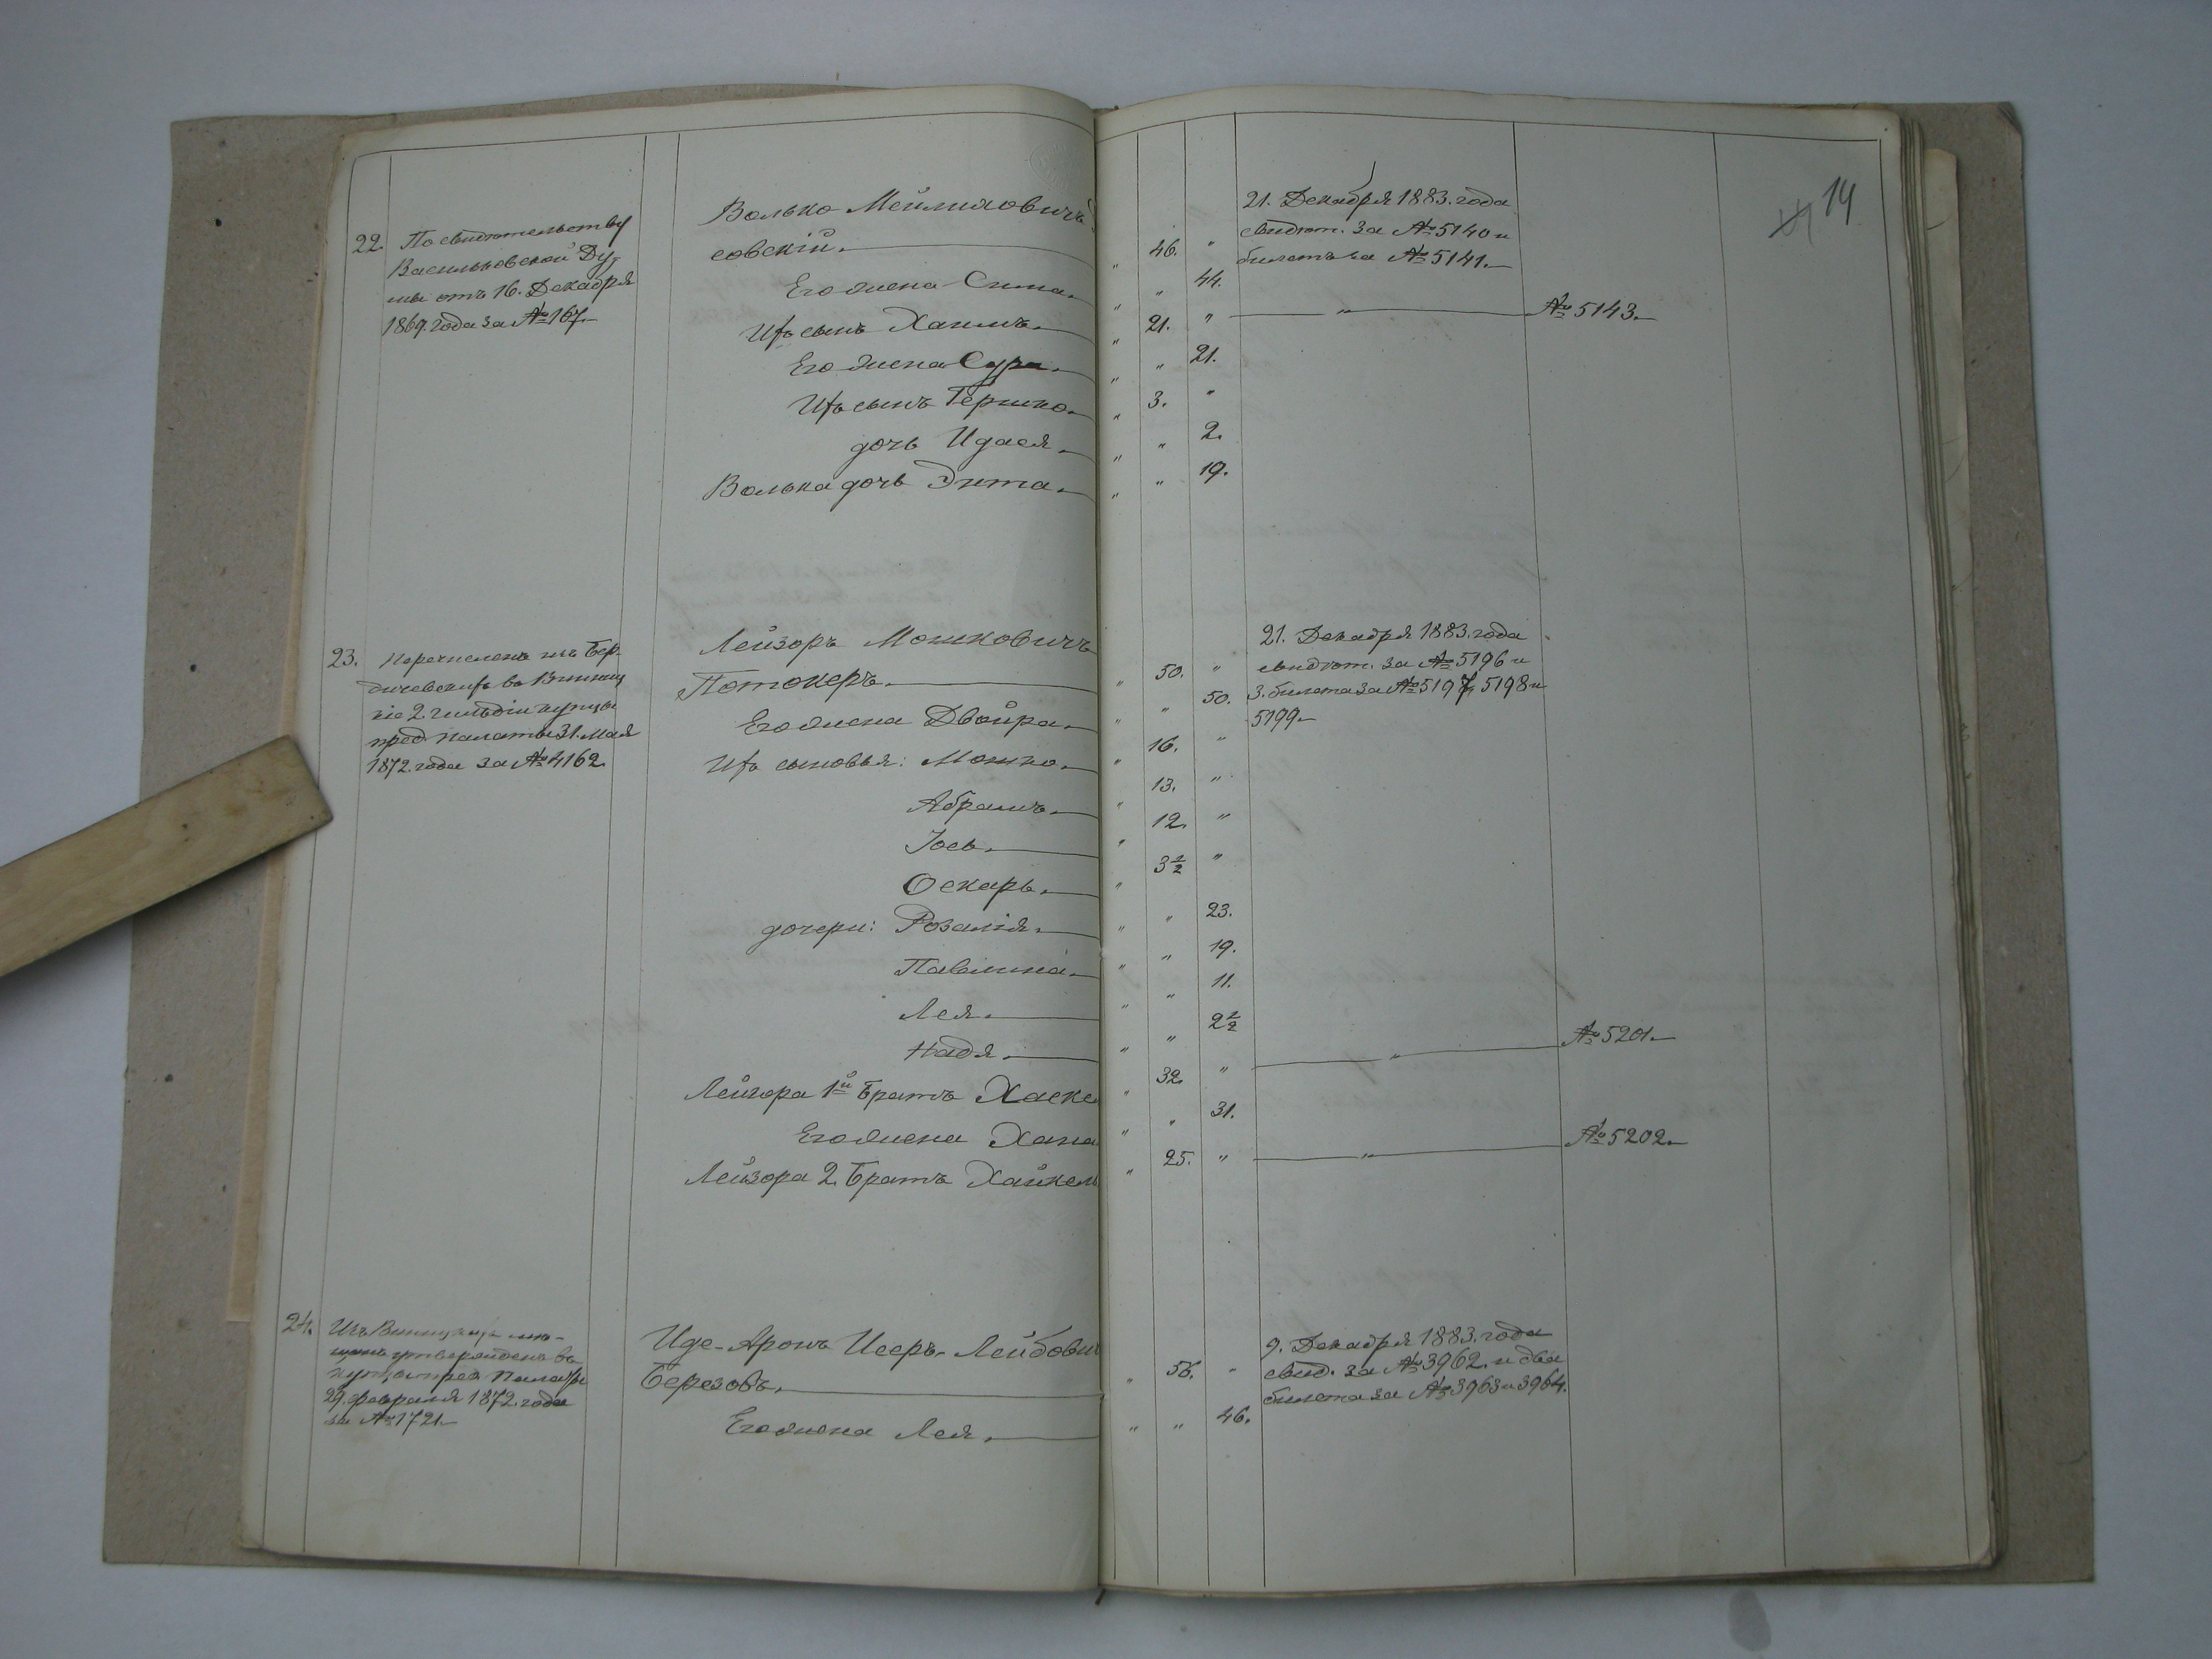 14
22. По свидѣтельству
Васильковской Ду-
мы отъ 16. Декабря
1869. года за № 167.
Волько Мейлиховичъ
совскій.
Его жена Сима.
Ихъ сынъ Хаимъ.
Его жена Сура.
Ихъ сынъ Гершко.
дочь Идася.
Волька дочь Энта.
" 46. "
" " 44.
" 21. "
" " 21.
" 3. "
" " 2.
" " 19.
21. Декабря 1883. года
свидѣт. за № 5140 и
билетъ за № 5141.
" № 5143.
23. Перечисленъ изъ Бер-
дичевскихъ въ Винниц
кіе 2. гильдіи купцы
пред. палаты 31. Мая
1872. года за № 4162.
Лейзоръ Мошковичъ
Потокеръ.
Его жена Двойра.
Ихъ сыновья: Мошко.
Абрамъ.
Іось.
Оскаръ.
дочери: Розалія.
Павлина.
Лея.
Надя.
Лейзора 1й братъ Хаске
Его жена Хана
Лейзора 2. братъ Хайкель
" 50. "
" " 50.
" 16. "
" 13. "
" 12. "
" 3 1/2 "
" " 23.
" " 19.
" " 11.
" " 2 1/2
" 32. "
" " 31.
" 25. "
21. Декабря 1883. года
свидѣт. за № 5196 и
3. билета за № 5197, 5198 и
5199.
" № 5201.
" № 5202.
24. Изъ Винницкихъ мѣ-
щанъ утвержденъ въ
купцы пред. Палаты
29. февраля 1872. года
за № 1721.
Иде-Аронъ Исеръ-Лейбович
Березовъ.
Его жена Лея.
" 56. "
" " 46.
9. Декабря 1883. года
свид. за № 3962. и два
билета за № 3963 и 3964.